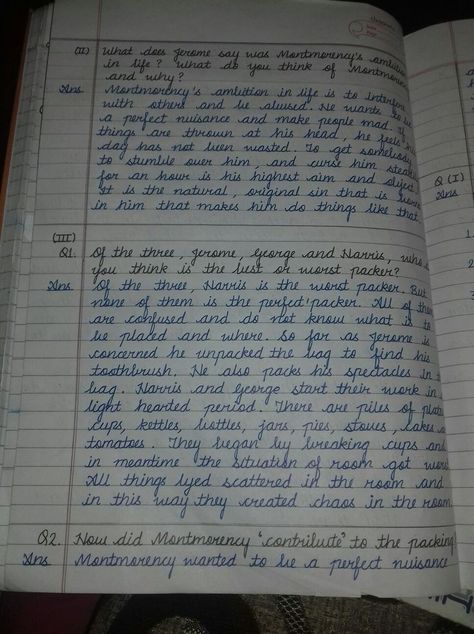 (II) What does Jerome say was Montmorency's ambition
in life? What do you think of Montmorency
and why?
Ans Montmorency's ambition in life is to interfere
with others and be abused. He wants to be
a perfect nuisance and make people mad. If
things are thrown at his head, he feels his
day has not been wasted. To get somebody
to stumble over him, and curse him steadily
for an hour is his highest aim and object.
It is the natural, original sin that is born
in him that makes him do things like that
(III)
Q1. Of the three, Jerome, George and Harris, who do
you think is the best or worst packer?
Ans Of the three, Harris is the worst packer. But
none of them is the perfect packer. All of them
are confused and do not know what is to
be placed and where. So far as Jerome is
concerned he unpacked the bag to find his
toothbrush. He also packs his spectacles in
bag. Harris and George start their work in
light hearted period. There are piles of plates
cups, kettles, bottles, jars, pies, stoves, cakes
tomatoes. They began by breaking cups and
in meantime the situation of room got worse
All things lyed scattered in the room and
in this way they created chaos in the room
Q2. How did Montmorency "contribute" to the packing
Ans Montmorency wanted to be a perfect nuisance
Q (I)
Ans
1.